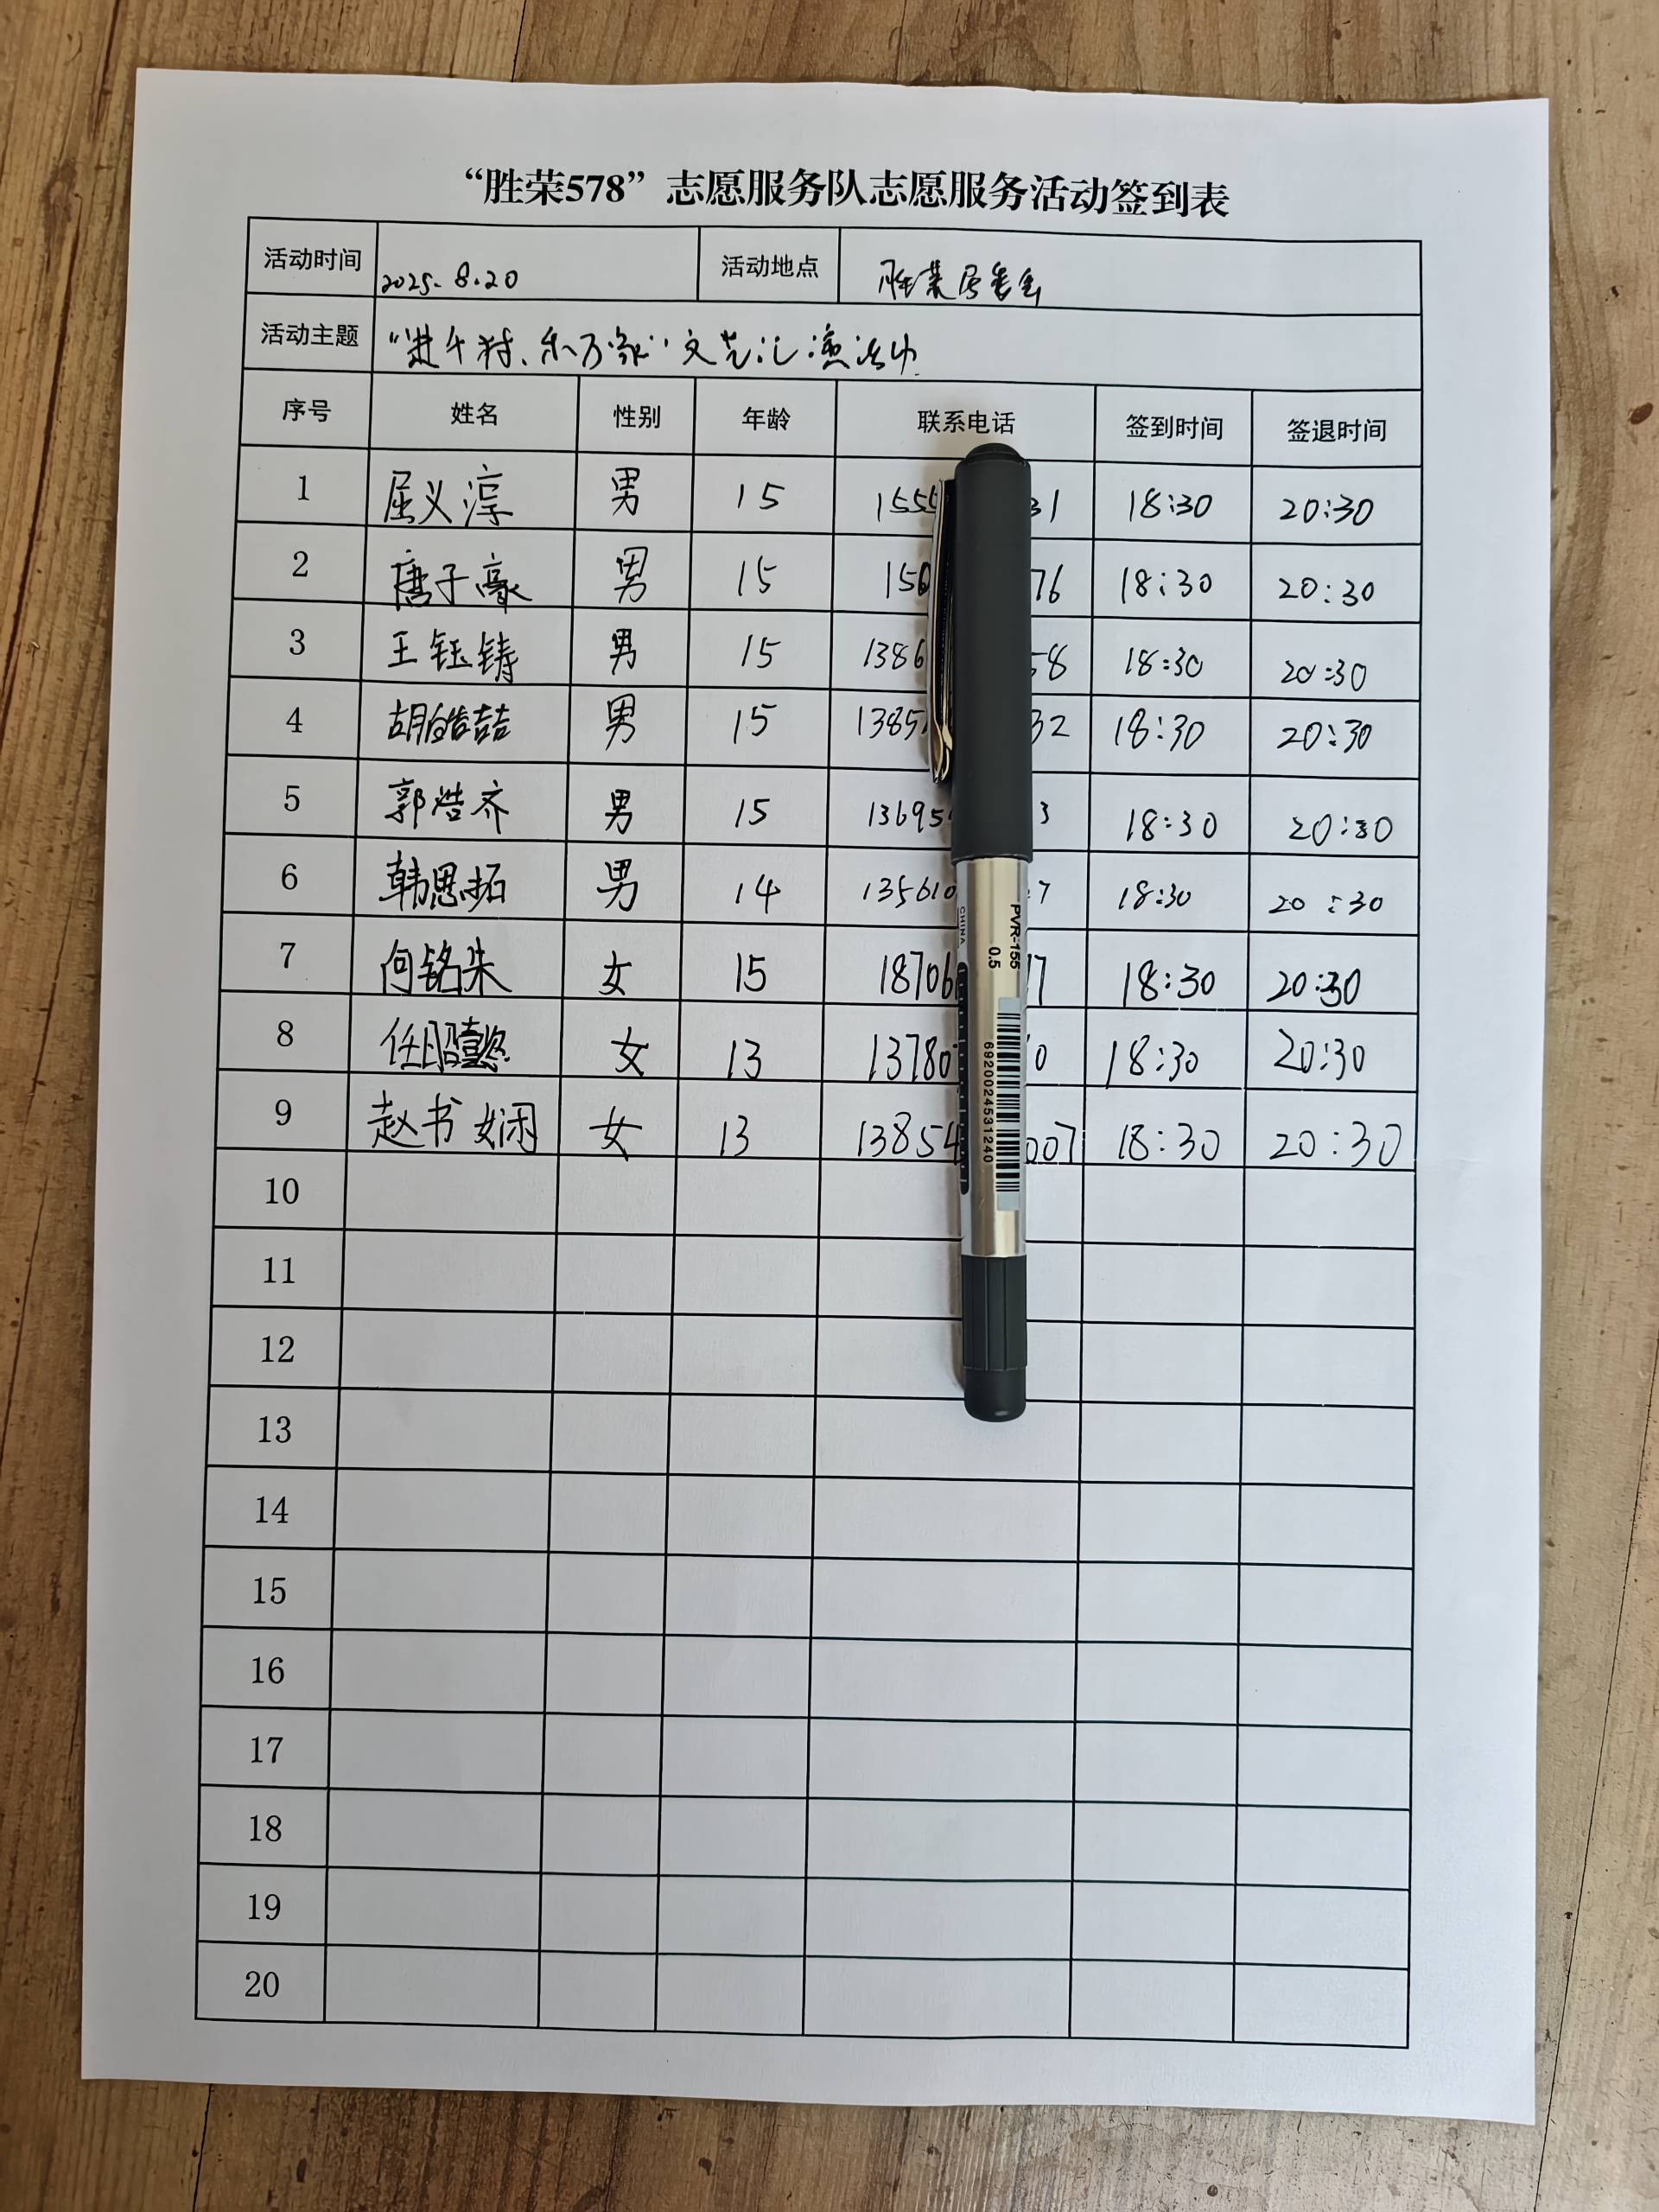 “胜荣578”志愿服务队志愿服务活动签到表
活动时间 2025.8.20 活动地点 胜荣居委会
活动主题 “进千村、乐万家”文艺汇演活动
序号 姓名 性别 年龄 联系电话 签到时间 签退时间
1 屈义淳 男 15 155 31 18:30 20:30
2 唐子豪 男 15 150 76 18:30 20:30
3 王钰铸 男 15 1386 58 18:30 20:30
4 胡皓喆 男 15 1385 32 18:30 20:30
5 郭浩齐 男 15 13695 3 18:30 20:30
6 韩思拓 男 14 135610 7 18:30 20:30
7 何铭朱 女 15 18706 17 18:30 20:30
8 任昭懿 女 13 1378 0 18:30 20:30
9 赵书娴 女 13 13854 007 18:30 20:30
10
11
12
13
14
15
16
17
18
19
20
PVR-155
0.5
CHINA
6920024531240